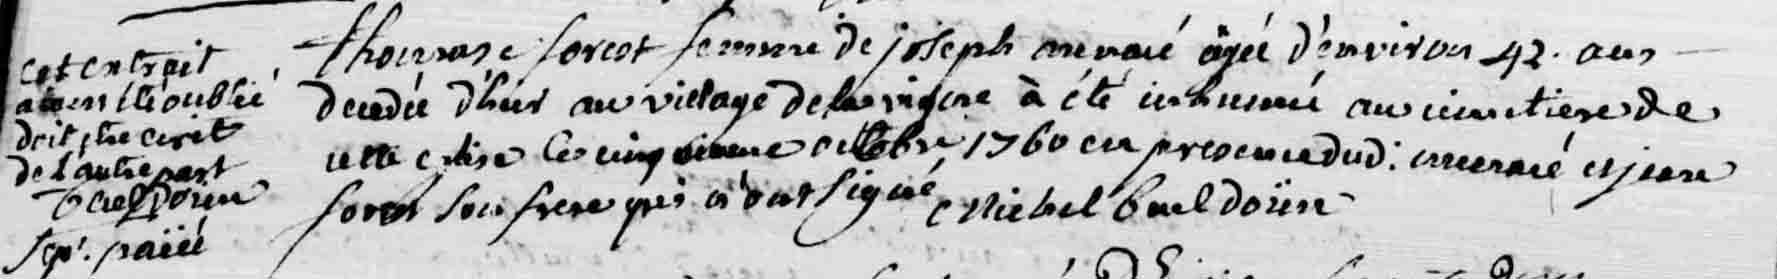 cet extrait
ayant été oublié
doit être écrit
de l'autre part
Baeldoüin
sep.r païié
thomase forest femme de joseph agée d'environ 42. ans
decedée d'hier au village de la vigne à été inhumée au cimetiere de
cette eglise le cinquieme octobre 1760 en presence dud: et jean
forest son frere qui n'ont signé Michel baeldoüin